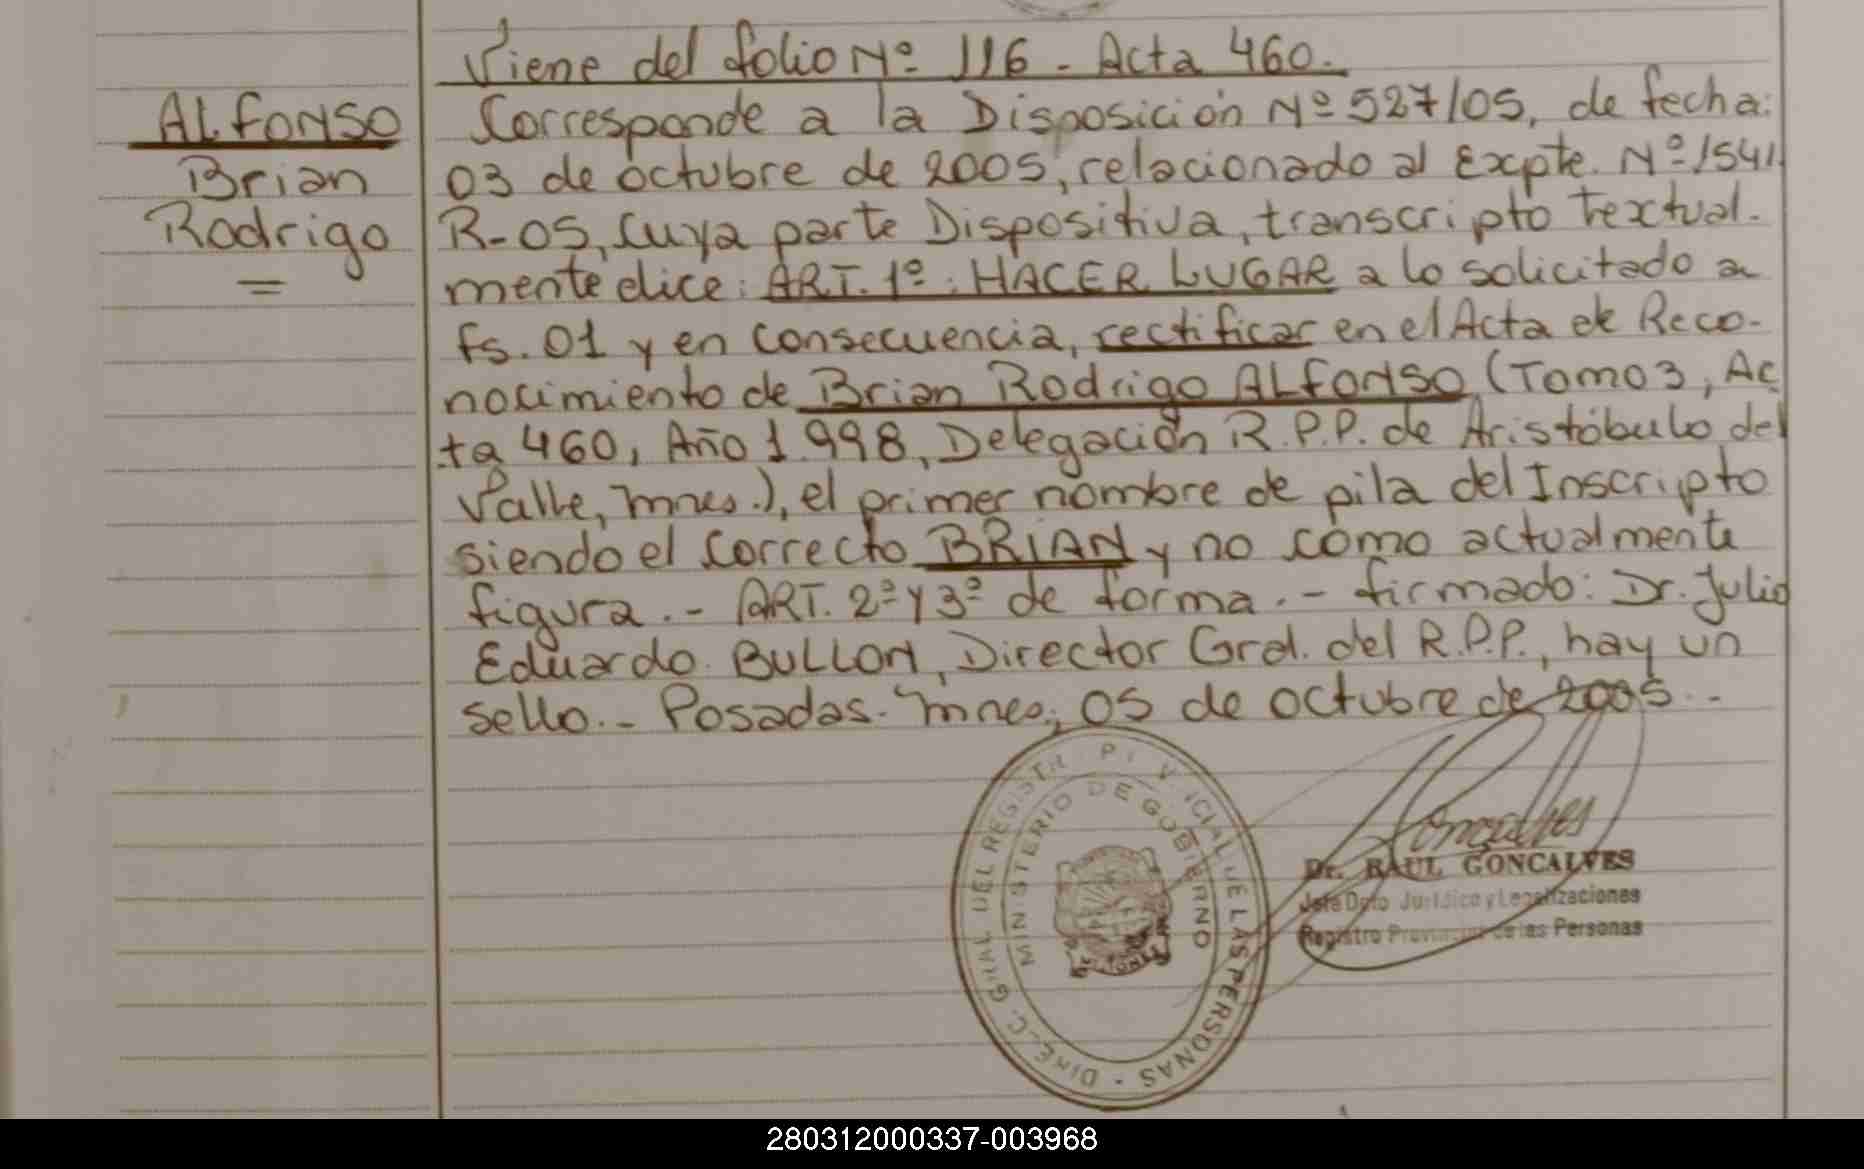 Viene del folio Nº 116 - Acta 460.-
ALFONSO
Brian
Rodrigo
=
Corresponde a la Disposición Nº 527/05, de fecha:
03 de octubre de 2005, relacionado al Expte. Nº 1541
R-05, cuya parte Dispositiva, transcripto textual-
mente dice: ART. 1º: HACER LUGAR a lo solicitado a
fs. 01 y en consecuencia, rectificar en el Acta de Reco-
nocimiento de Brian Rodrigo ALFONSO (Tomo 3, Ac
ta 460, Año 1.998, Delegación R.P.P. de Aristóbulo del
Valle, Mnes.), el primer nombre de pila del Inscripto
siendo el correcto BRIAN y no como actualmente
figura.- ART. 2º y 3º de forma.- firmado: Dr. Julio
Eduardo BULLON, Director Gral. del R.P.P., hay un
sello.- Posadas. Mnes, 05 de octubre de 2005.-
MINISTERIO DE GOBIERNO
Dr. RAUL GONCALVES
Jefe Dpto Jurídico y Legalizaciones
Registro Provincial de las Personas
280312000337-003968